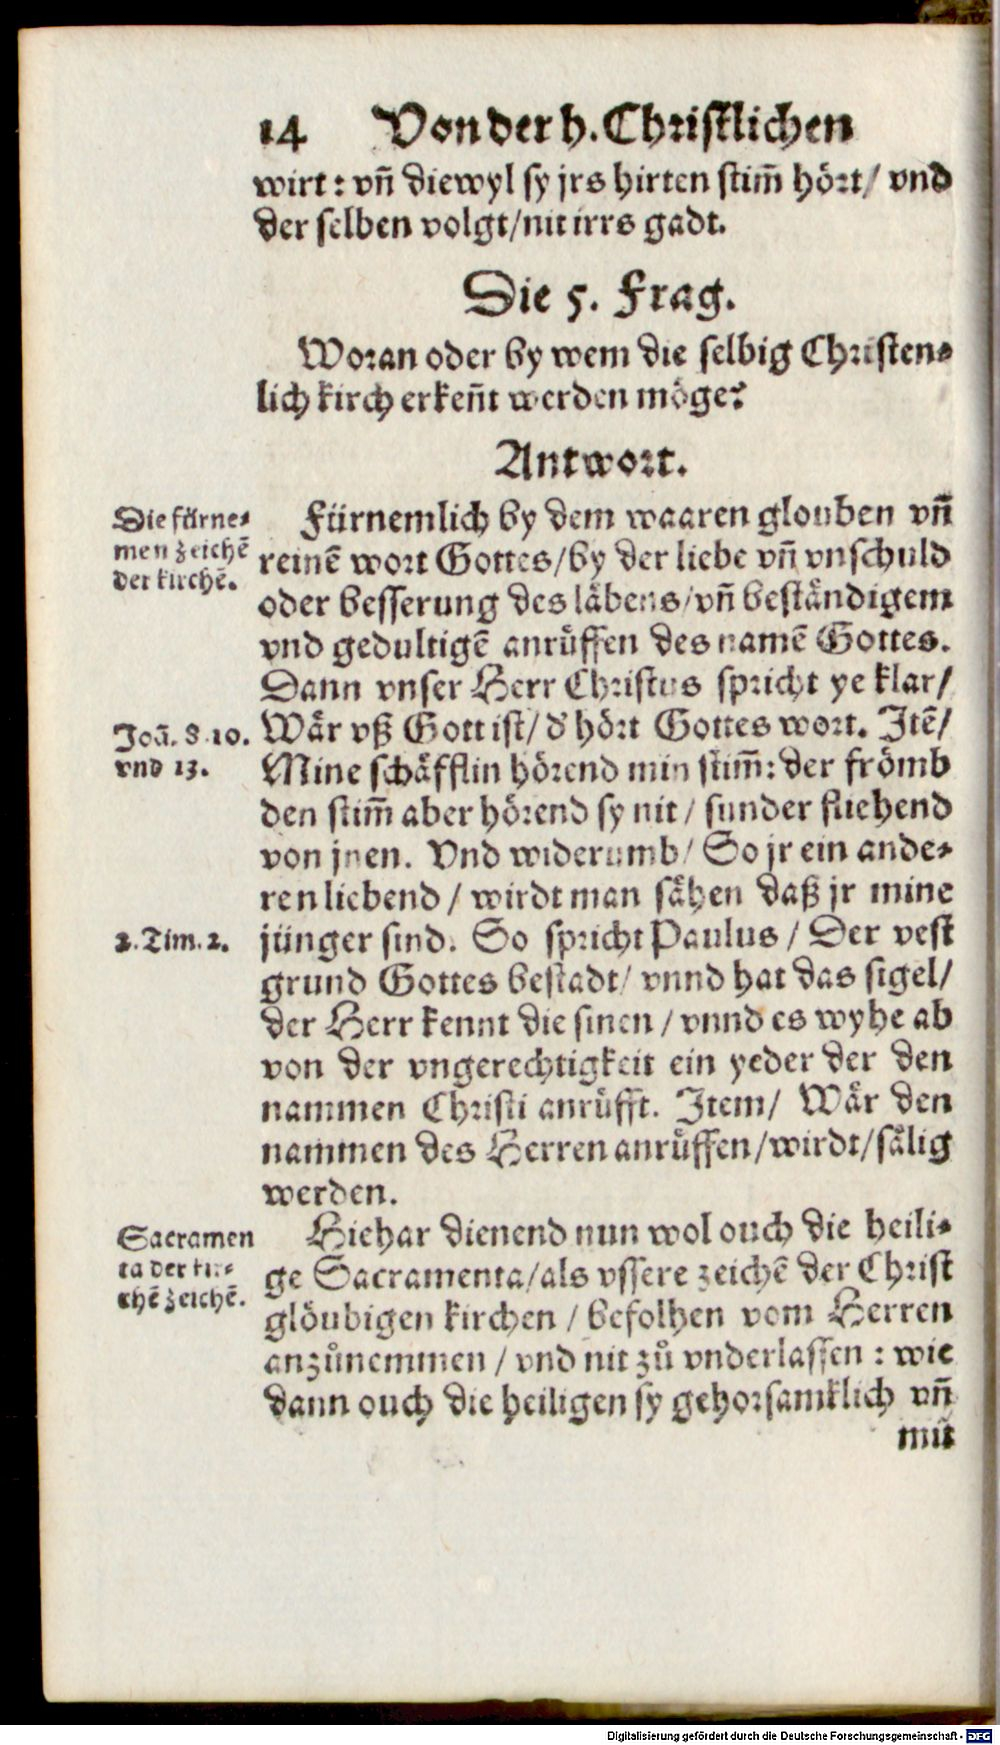 14 Von der h. Christlichen
wirt: vn̄ diewyl sy jrs hirten stim̄ hört/ vnd
der selben volgt/nit irrs gadt.
Die 5. Frag.
Woran oder by wem die selbig Christen⸗
lich kirch erkeñt werden möge?
Antwort.
Die fürne⸗
men zeichē
der kirchē.
Fürnemlich by dem waaren glouben vn̄
reinē wort Gottes/by der liebe vn̄ vnschuld
oder besserung des läbens/vn̄ beständigem
vnd gedultigē anrüffen des namē Gottes.
Dann vnser Herr Christus spricht ye klar/
Joā. 8.10.
vnd 13.
Wär vß Gott ist/ d' hört Gottes wort. Jtē/
Mine schäfflin hörend min stim̄: der frömb
den stim̄ aber hörend sy nit/ sunder fliehend
von jnen. Vnd widerumb/ So jr ein ande⸗
ren liebend/ wirdt man sähen daß jr mine
2. Tim. 2.
jünger sind. So spricht Paulus/ Der vest
grund Gottes bestadt/ vnnd hat das sigel/
der Herr kennt die sinen/ vnnd es wyhe ab
von der vngerechtigkeit ein yeder der den
nammen Christi anrüfft. Jtem/ Wär den
nammen des Herren anrüffen/wirdt/sälig
werden.
Sacramen
ta der kir⸗
chē zeichē.
Hiehar dienend nun wol ouch die heili⸗
ge Sacramenta/als vssere zeichē der Christ
glöubigen kirchen/ befolhen vom Herren
anzůnemmen/ vnd nit zů vnderlassen: wie
dann ouch die heiligen sy gehorsamklich vn̄
mit
Digitalisierung gefördert durch die Deutsche Forschungsgemeinschaft - DFG